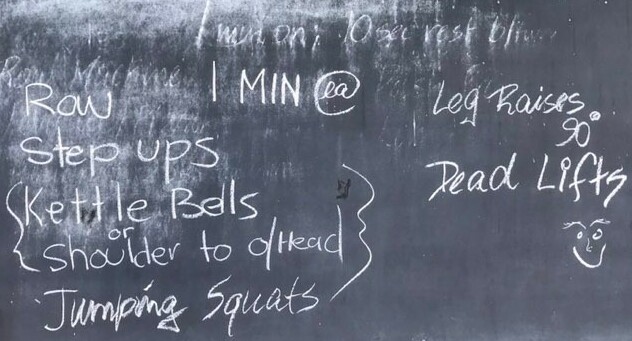 1 min on; 10 sec rest
Row Machine
Row
1 MIN ea
Step ups
Kettle Bells
or
Shoulder to o/Head
Jumping Squats
Leg Raises
90°
Dead Lifts